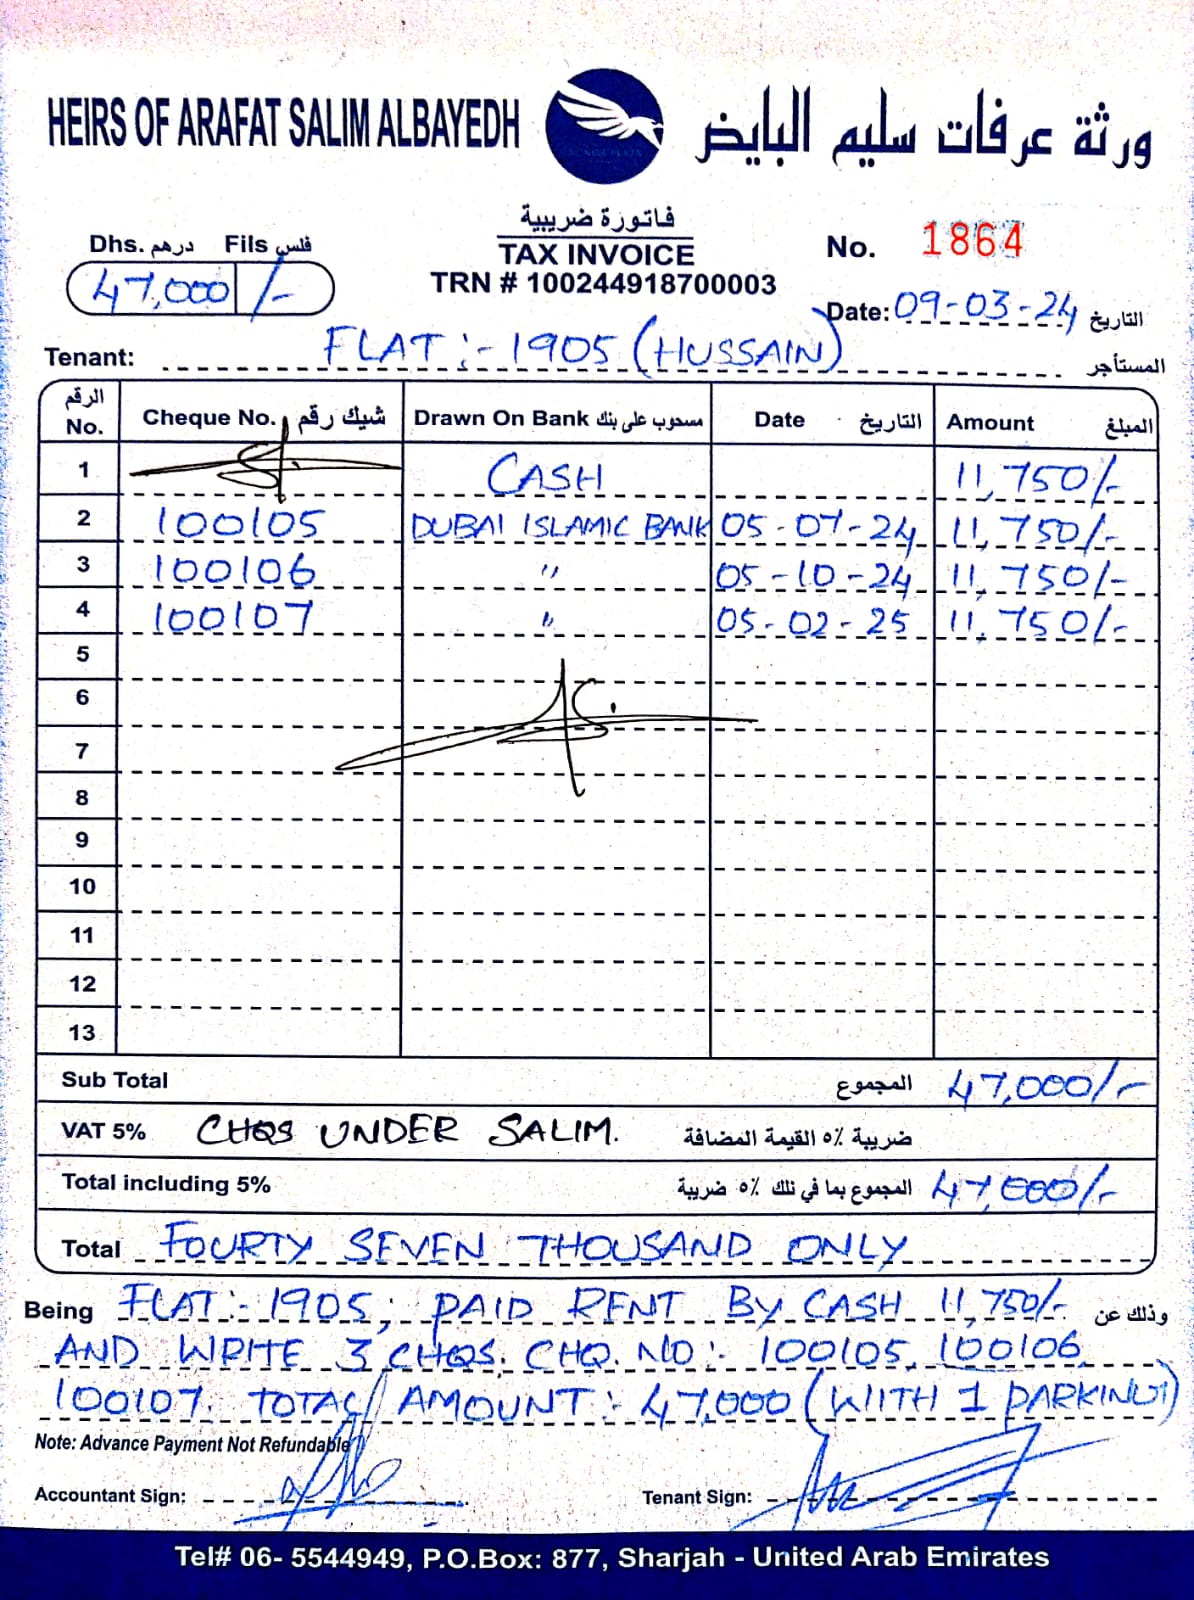 HEIRS OF ARAFAT SALIM ALBAYEDH
ورثة عرفات سليم البايض
فاتورة ضريبية
TAX INVOICE
TRN # 100244918700003
Dhs. درهم Fils فلس
47,000 /-
No. 1864
Date: 09-03-24 التاريخ
Tenant: FLAT :- 1905 (HUSSAIN) المستأجر
الرقم No. Cheque No. شيك رقم Drawn On Bank مسحوب على بنك Date التاريخ Amount المبلغ
1 CASH 11,750/-
2 100105 DUBAI ISLAMIC BANK 05-07-24 11,750/-
3 100106 " 05-10-24 11,750/-
4 100107 " 05-02-25 11,750/-
5
6
7
8
9
10
11
12
13
Sub Total المجموع 47,000/-
VAT 5% CHQS UNDER SALIM. ضريبة ٥٪ القيمة المضافة
Total including 5% المجموع بما في ذلك ٥٪ ضريبة 47,000/-
Total FOURTY SEVEN THOUSAND ONLY
Being FLAT:- 1905; PAID RENT BY CASH 11,750/- وذلك عن
AND WRITE 3 CHQS. CHQ. NO:- 100105, 100106
100107. TOTAL AMOUNT:- 47,000 (WITH 1 PARKING)
Note: Advance Payment Not Refundable
Accountant Sign: Tenant Sign:
Tel# 06- 5544949, P.O.Box: 877, Sharjah - United Arab Emirates